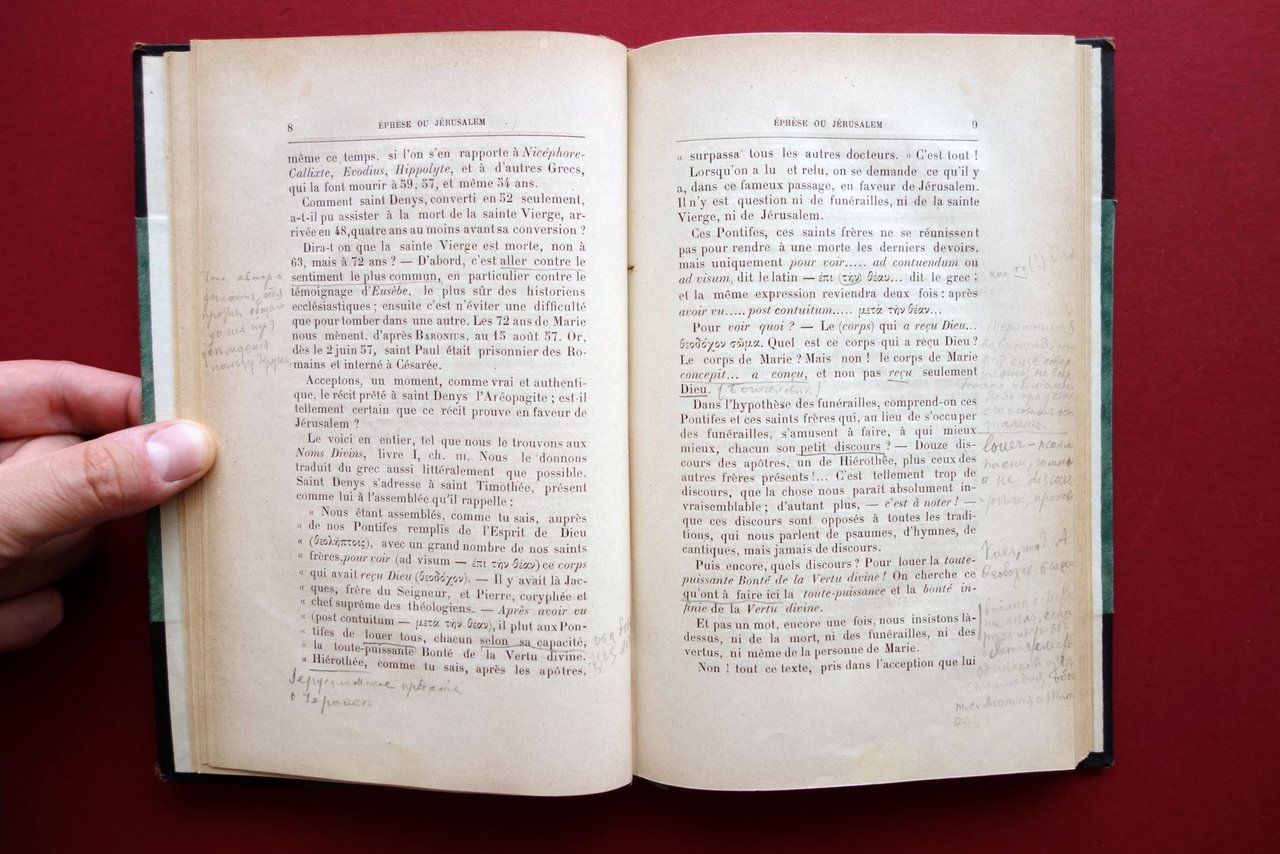 8
ÉPHÈSE OU JÉRUSALEM
même ce temps, si l'on s'en rapporte à Nicéphore-
Callixte, Evodius, Hippolyte, et à d'autres Grecs,
qui la font mourir à 59, 57, et même 54 ans.
Comment saint Denys, converti en 52 seulement,
a-t-il pu assister à la mort de la sainte Vierge, ar-
rivée en 48, quatre ans au moins avant sa conversion ?
Dira-t on que la sainte Vierge est morte, non à
63, mais à 72 ans ? — D'abord, c'est aller contre le
sentiment le plus commun, en particulier contre le
témoignage d'Eusèbe, le plus sûr des historiens
ecclésiastiques ; ensuite c'est n'éviter une difficulté
que pour tomber dans une autre. Les 72 ans de Marie
nous mènent, d'après BARONIUS, au 15 août 57. Or,
dès le 2 juin 57, saint Paul était prisonnier des Ro-
mains et interné à Césarée.
Acceptons, un moment, comme vrai et authenti-
que, le récit prêté à saint Denys l'Aréopagite ; est-il
tellement certain que ce récit prouve en faveur de
Jérusalem ?
Le voici en entier, tel que nous le trouvons aux
Noms Divins, livre I, ch. III. Nous le donnons
traduit du grec aussi littéralement que possible.
Saint Denys s'adresse à saint Timothée, présent
comme lui à l'assemblée qu'il rappelle :
« Nous étant assemblés, comme tu sais, auprès
« de nos Pontifes remplis de l'Esprit de Dieu
« (θεολήπτοις), avec un grand nombre de nos saints
« frères, pour voir (ad visum — ἐπι τὴν θέαν) ce corps
« qui avait reçu Dieu (θεοδόχον). — Il y avait là Jac-
« ques, frère du Seigneur, et Pierre, coryphée et
« chef suprême des théologiens. — Après avoir vu
« (post contuitum — μετα τὴν θέαν), il plut aux Pon-
« tifes de louer tous, chacun selon sa capacité,
« la toute-puissante Bonté de la Vertu divine.
« Hiérothée, comme tu sais, après les apôtres,
ÉPHÈSE OU JÉRUSALEM
9
« surpassa tous les autres docteurs. » C'est tout !
Lorsqu'on a lu et relu, on se demande ce qu'il y
a, dans ce fameux passage, en faveur de Jérusalem.
Il n'y est question ni de funérailles, ni de la sainte
Vierge, ni de Jérusalem.
Ces Pontifes, ces saints frères ne se réunissent
pas pour rendre à une morte les derniers devoirs,
mais uniquement pour voir..... ad contuendum ou
ad visum, dit le latin — ἐπι (τὴν) θέαν... dit le grec ;
et la même expression reviendra deux fois : après
avoir vu..... post contuitum..... μετὰ τὴν θέαν...
Pour voir quoi ? — Le (corps) qui a reçu Dieu...
θεοδόχον σῶμα. Quel est ce corps qui a reçu Dieu ?
Le corps de Marie ? Mais non ! le corps de Marie
concepit... a conçu, et non pas reçu seulement
Dieu.
Dans l'hypothèse des funérailles, comprend-on ces
Pontifes et ces saints frères qui, au lieu de s'occuper
des funérailles, s'amusent à faire, à qui mieux
mieux, chacun son petit discours ? — Douze dis-
cours des apôtres, un de Hiérothée, plus ceux des
autres frères présents !... C'est tellement trop de
discours, que la chose nous paraît absolument in-
vraisemblable ; d'autant plus, — c'est à noter ! —
que ces discours sont opposés à toutes les tradi-
tions, qui nous parlent de psaumes, d'hymnes, de
cantiques, mais jamais de discours.
Puis encore, quels discours ? Pour louer la toute-
puissante Bonté de la Vertu divine ! On cherche ce
qu'ont à faire ici la toute-puissance et la bonté in-
finie de la Vertu divine.
Et pas un mot, encore une fois, nous insistons là-
dessus, ni de la mort, ni des funérailles, ni des
vertus, ni même de la personne de Marie.
Non ! tout ce texte, pris dans l'acception que lui